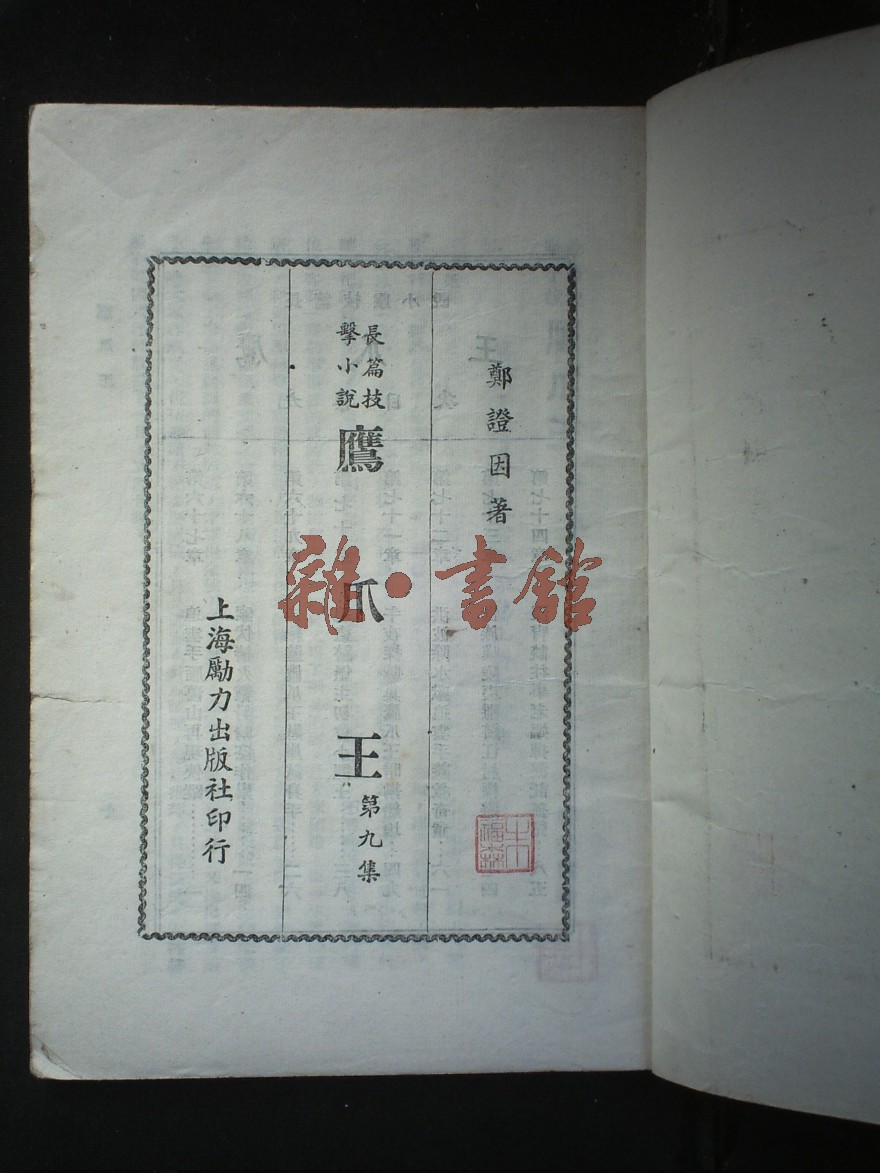 鄭證因著
長篇技擊小說
鷹爪王
第九集
上海勵力出版社印行
雜·書館